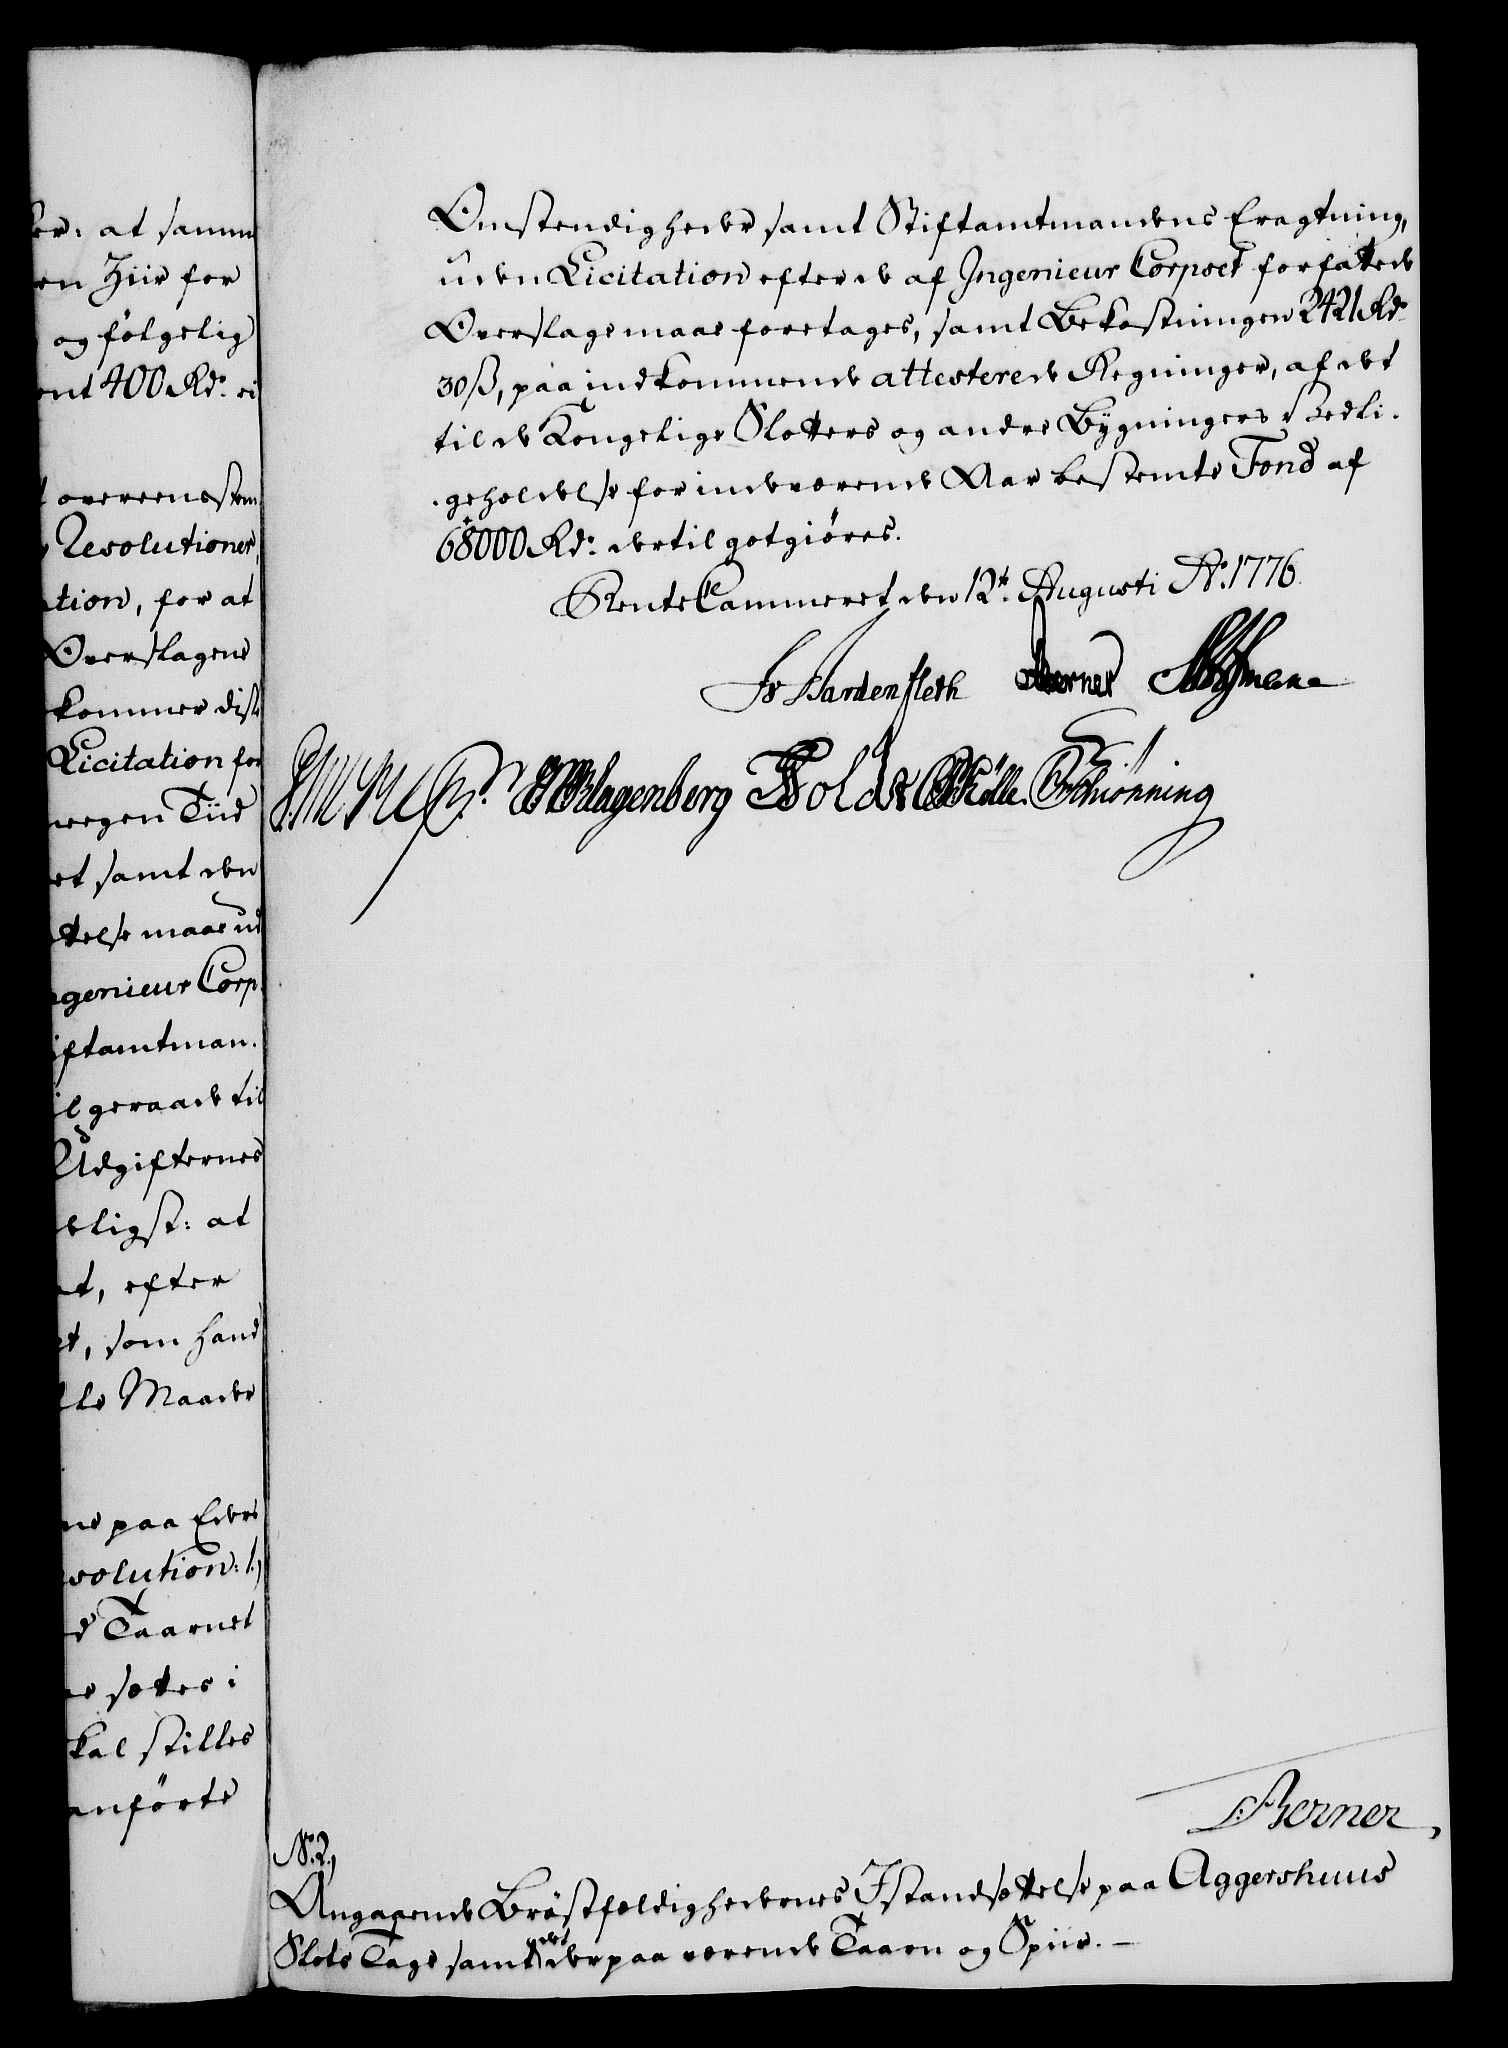 er: at samme
en Ziir for
og følgelig
ent 400 Rd. ei
t overeensstem
Resolutioner,
ation, for at
Overslagene
kommer dist
Licitation for
megen Tiid
et samt den
ttelse maae ud
ngenieur Corp
iftamtman-
il geraade til
Udgifternes
deligst: at
et, efter
et, som hand
lle Maader
ne paa Eders
solution: 1.)
d Taarnet
ne sættes i
kal stilles
anførte
Omstendigheder samt Stiftamtmandens Eragtning,
uden Licitation efter de af Ingenieur Corpset forfattede
Overslage maae foretages, samt Bekostningen 2421 Rd.
30 ß, paa indkommende attesterede Regninger, af det
til de Kongelige Slotters og andre Bygningers Vedli-
-geholdelse for indeværende Aar bestemte Fond af
68000 Rd. dertil gotgiøres.
RenteCammeret den 12te Augusti Ao. 1776.
Hardenfleth Berner
Klagenberg Told Kølle Schiønning
Berner,
No. 2,
Angaaende Brøstfældighedernes Istandsættelse paa Aggershuus
Slots Tage samt det derpaa værende Taarn og Spiir. —